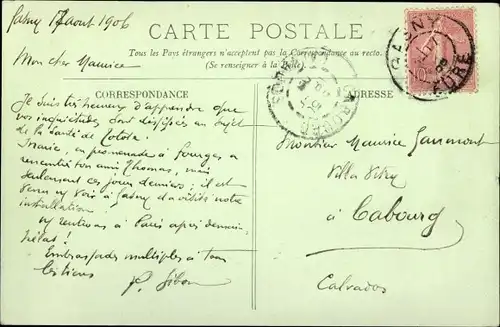 Gasny 17 Août 1906
CARTE POSTALE
Tous les Pays étrangers n'acceptent pas la Correspondance au recto.
(Se renseigner à la Poste).
Mon cher Maurice
CORRESPONDANCE
ADRESSE
Je suis très heureux d'apprendre que
vos inquiétudes sont dissipées au sujet
de la santé de Totote.
en promenade à Fourges a
rencontré ton ami Thomas, mais
seulement ces jours derniers ; il est
venu voir à Gasny notre
installation.
rentrons à Paris après demain,
hélas !
Embrassades multiples à tous
les tiens
Monsieur Maurice
Villa
à Cabourg
Calvados
GASNY
EURE
CALVADOS